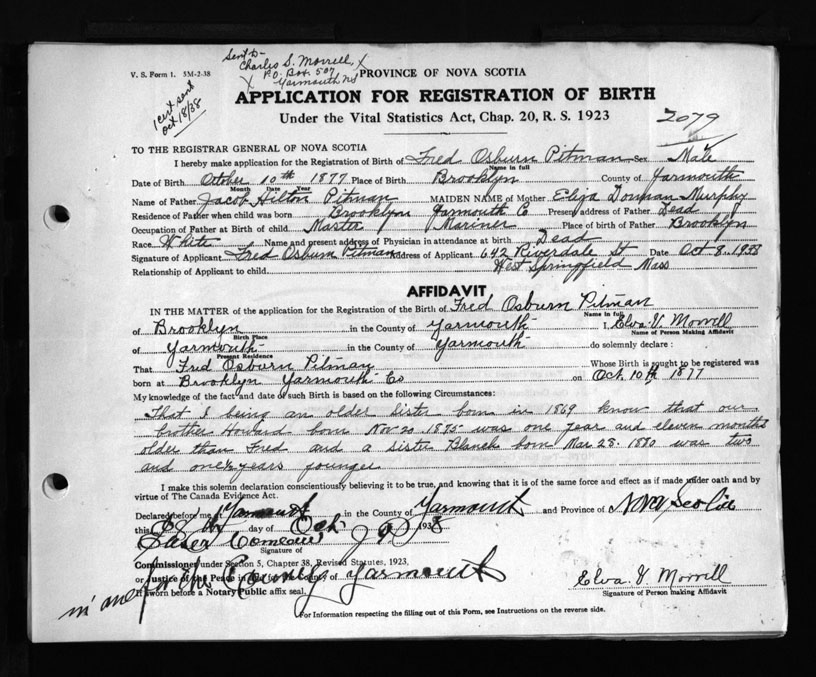 Sent to
Charles S. Morrell, X
X P.O. Box 507
Yarmouth NS
V. S. Form 1. 3M-2-38
PROVINCE OF NOVA SCOTIA
1 cert sent
Oct 18/38
APPLICATION FOR REGISTRATION OF BIRTH
Under the Vital Statistics Act, Chap. 20, R. S. 1923
2079
TO THE REGISTRAR GENERAL OF NOVA SCOTIA
I hereby make application for the Registration of Birth of Fred Osburn Pitman Sex Male
Name in full
Date of Birth October 10th 1877 Place of Birth Brooklyn County of Yarmouth
Month Date Year
Name of Father Jacob Hilton Pitman MAIDEN NAME of Mother Eliza Murphy
Residence of Father when child was born Brooklyn Yarmouth Co Present address of Father Dead
Occupation of Father at Birth of child Master Mariner Place of birth of Father Brooklyn
Race White Name and present address of Physician in attendance at birth Dead
Signature of Applicant Fred Osburn Pitman Address of Applicant 642 Riverdale St Date Oct 8, 1938
Relationship of Applicant to child West Springfield Mass
AFFIDAVIT
IN THE MATTER of the application for the Registration of the Birth of Fred Osburn Pitman
Name in full
of Brooklyn in the County of Yarmouth I, Elva V. Morrell
Birth Place Name of Person Making Affidavit
of Yarmouth in the County of Yarmouth do solemnly declare:
Present Residence
That Fred Osburn Pitman Whose Birth is sought to be registered was
born at Brooklyn Yarmouth Co on Oct. 10th 1877
My knowledge of the fact and date of such Birth is based on the following Circumstances:
That I being an older sister born in 1869 know that our
brother Howard born Nov 20 1875 was one year and eleven months
older than Fred and a sister Blanch born Mar. 28. 1880 was two
and one years younger
I make this solemn declaration conscientiously believing it to be true, and knowing that it is of the same force and effect as if made under oath and by
virtue of The Canada Evidence Act.
Declared before me Yarmouth in the County of Yarmouth and Province of Nova Scotia
this day of Oct 1938
Comeau J P
Signature of
Commissioner under Section 5, Chapter 38, Revised Statutes, 1923,
or Justice of the Peace in and for the County of Yarmouth
If sworn before a Notary Public affix seal.
in and for the County Elva V. Morrell
Signature of Person Making Affidavit
For Information respecting the filling out of this Form, see Instructions on the reverse side.